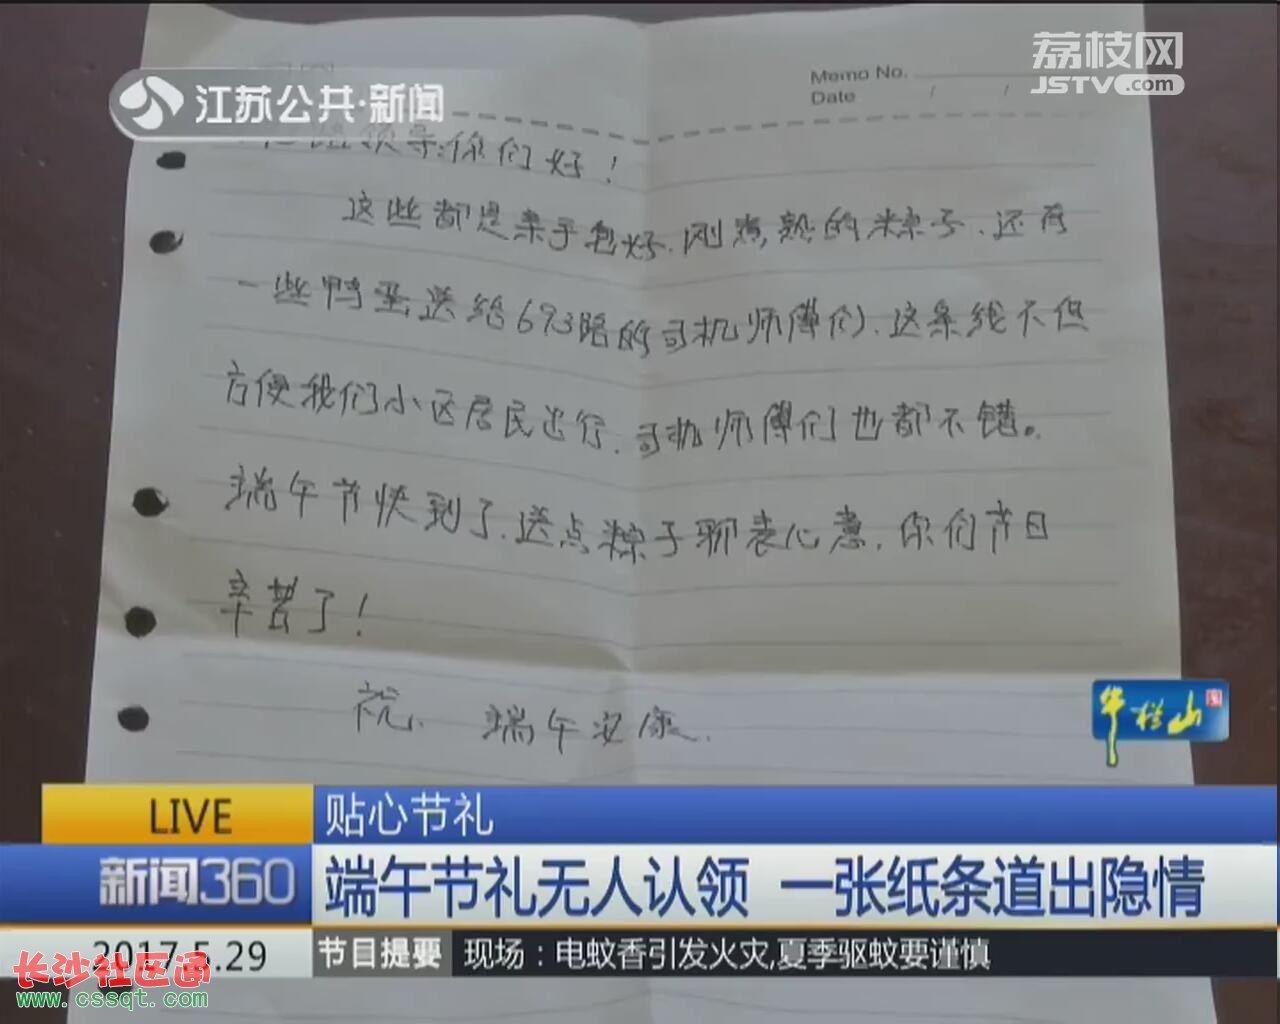 江苏公共·新闻
荔枝网
JSTV.com
Memo No.
Date / /
路领导:你们好!
这些都是亲手包好、刚煮熟的粽子、还有
一些鸭蛋送给693路的司机师傅们、这条线不但
方便我们小区居民出行、司机师傅们也都不错。
端午节快到了、送点粽子聊表心意、你们节日
辛苦了!
祝、端午安康.
牛栏山
LIVE
贴心节礼
新闻360
端午节礼无人认领 一张纸条道出隐情
2017.5.29
节目提要 现场：电蚊香引发火灾,夏季驱蚊要谨慎
长沙社区通
www.cssqt.com